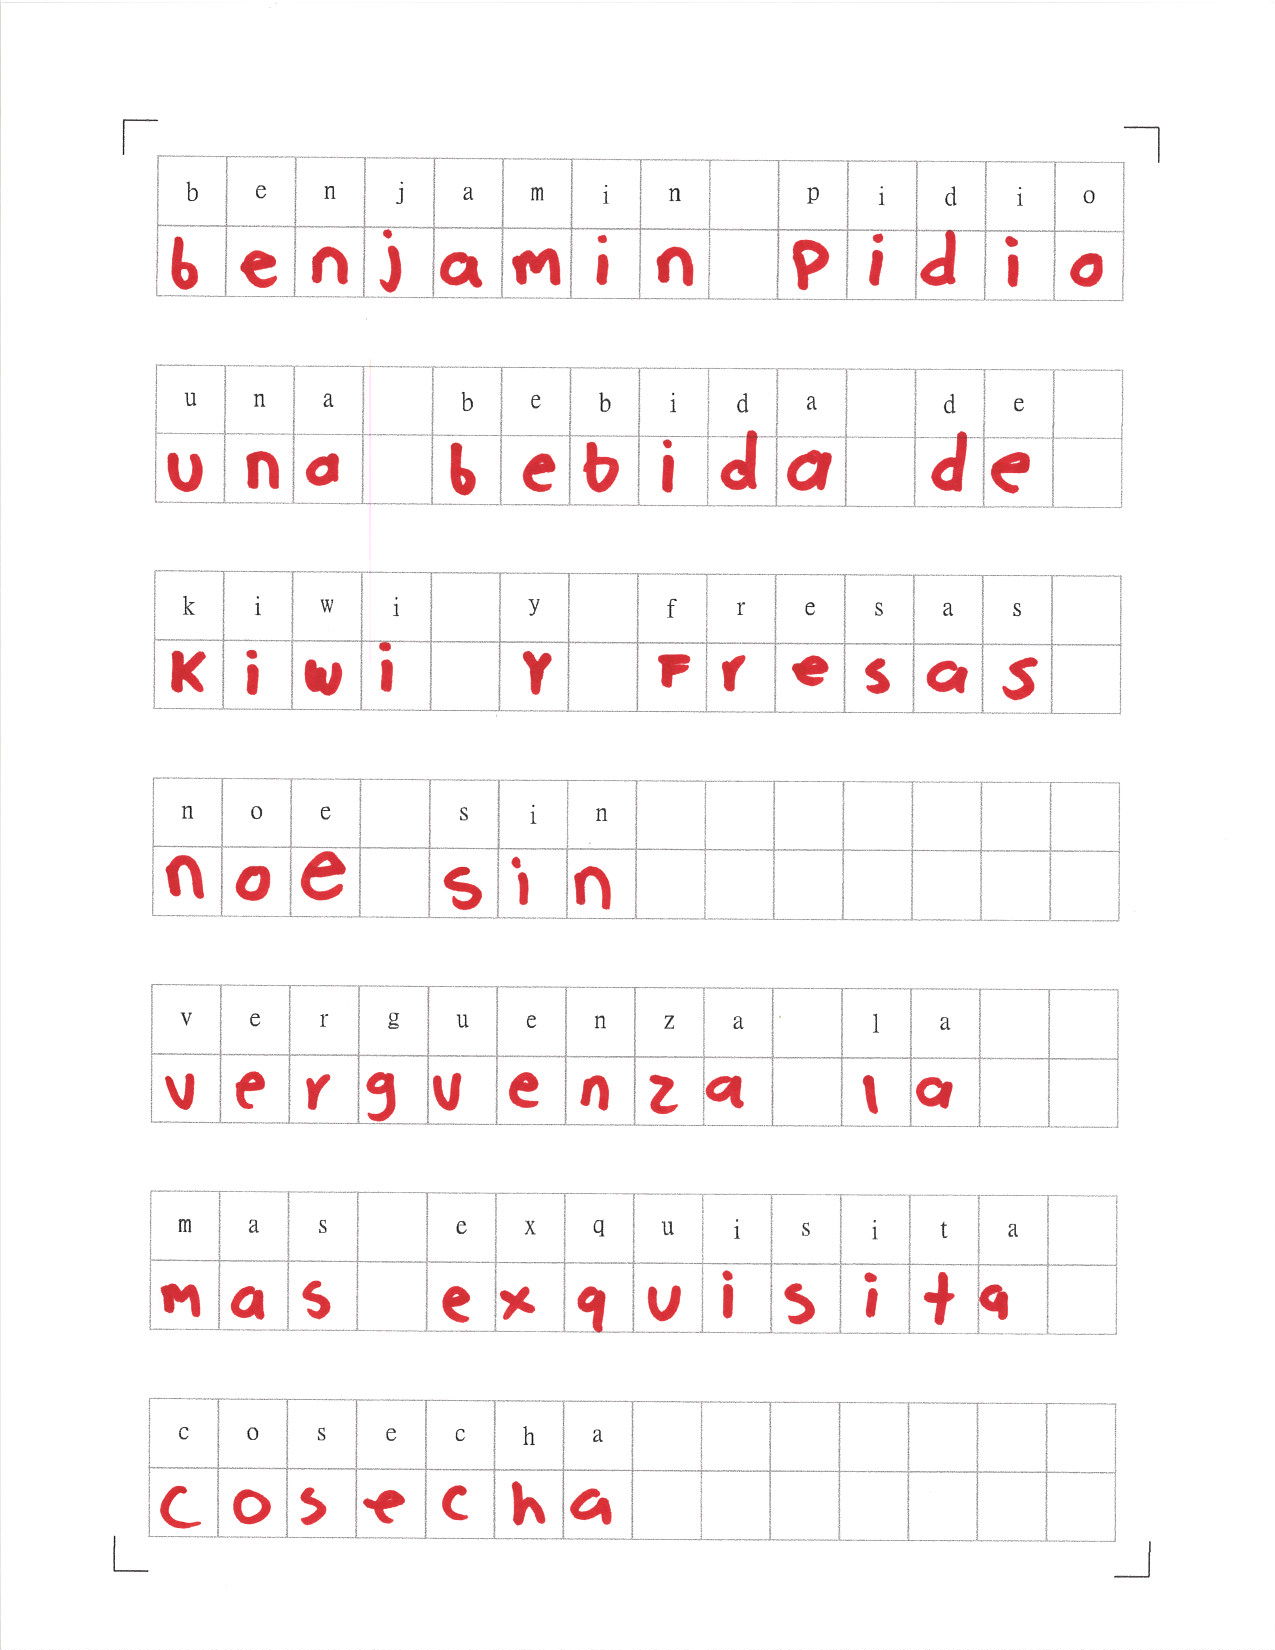 benjamin pidio
benjamin pidio
una bebida de
una bebida de
kiwi y fresas
Kiwi Y Fresas
noe sin
noe sin
verguenza la
verguenza la
mas exquisita
mas exquisita
cosecha
cosecha